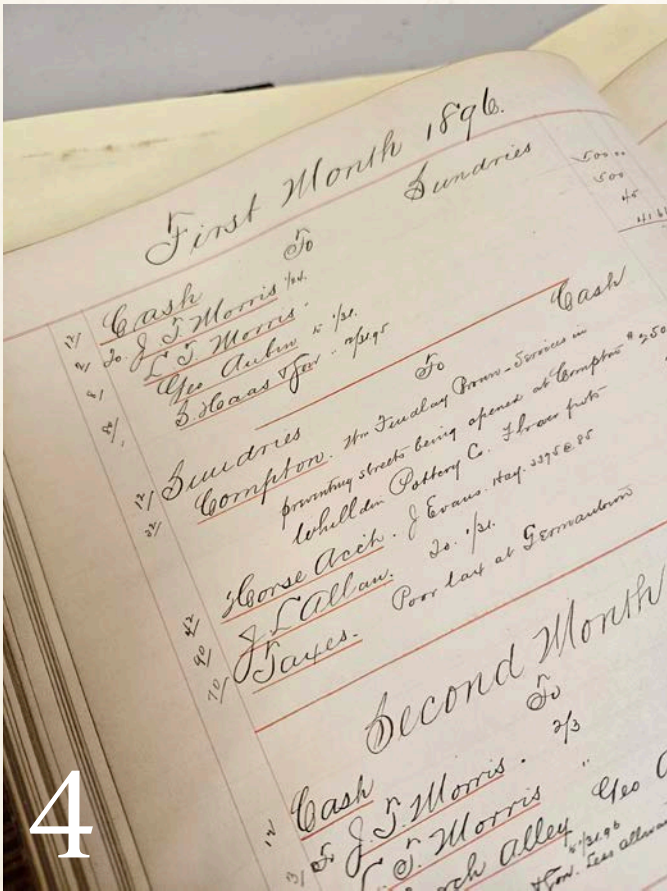 First Month 1896.
Sundries
To
Cash
J. T. Morris
L. T. Morris
Geo Aubin
S. Haas & Son
Cash
To
Sundries
Compton. Wm Findlay Brown - Services in
preventing streets being opened at Compton $250
Whilldin Pottery Co. Flower pots
Horse Acct. J Evans. Hay. 3395 @ 85
J L Allan. To 1/31.
Taxes. Poor tax at Germantown
Second Month
To
Cash
J. T. Morris. 2/3
L. T. Morris "
Alley Geo
Less
4